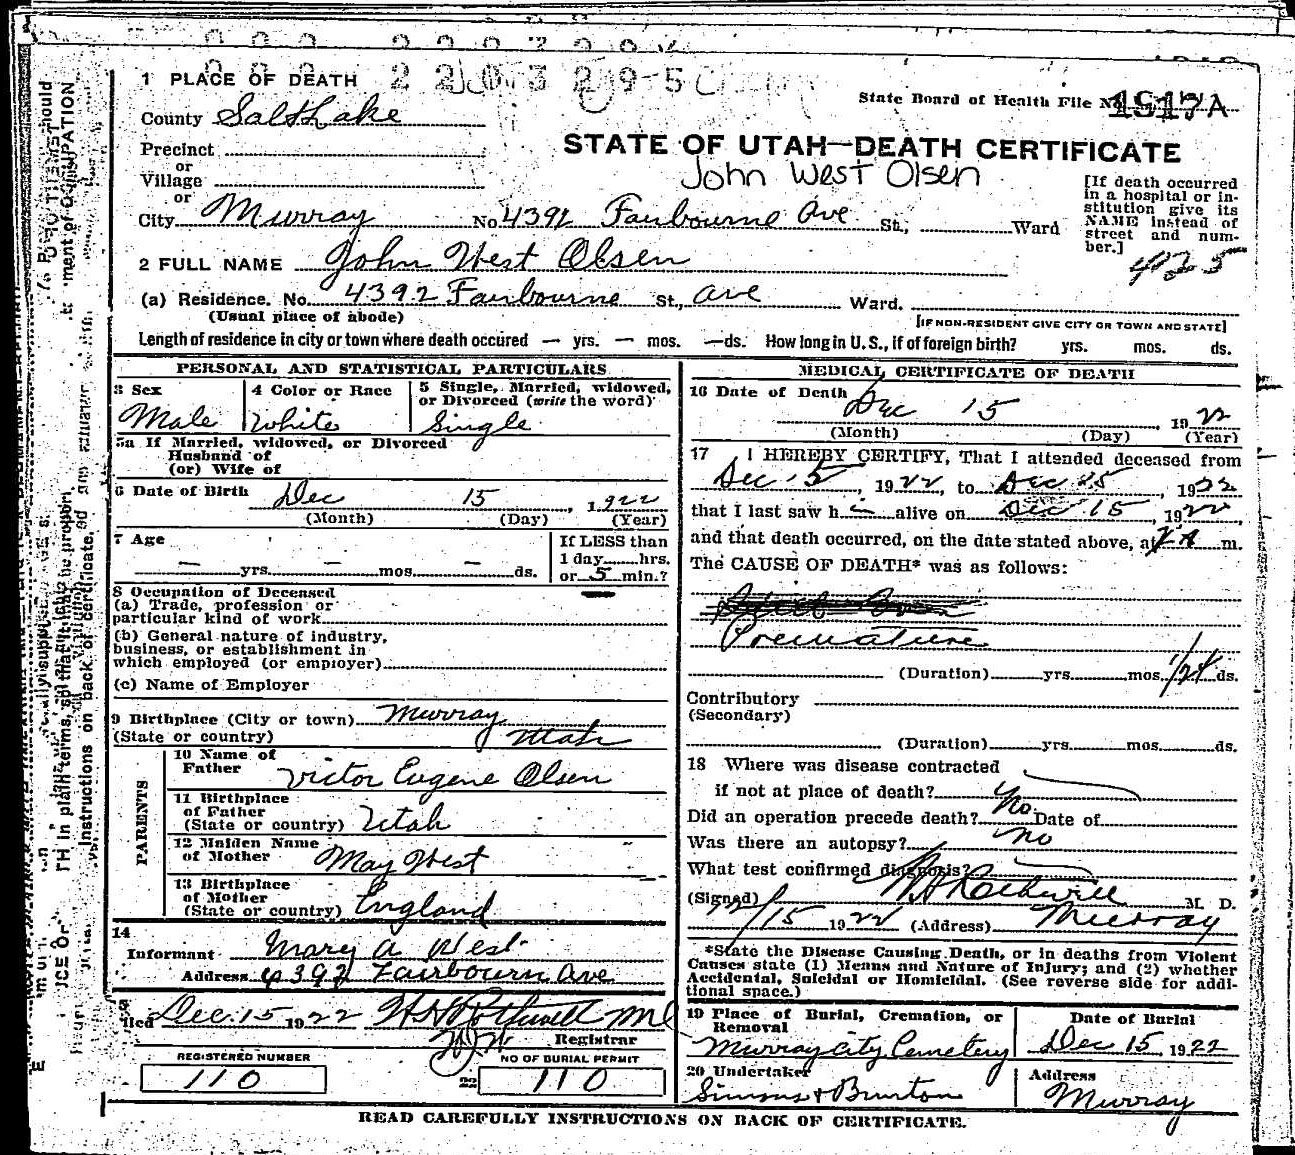 1 PLACE OF DEATH
State Board of Health File No. 1817A
County Salt Lake
STATE OF UTAH—DEATH CERTIFICATE
Precinct
John West Olsen
or
Village
or
[If death occurred in a hospital or institution give its NAME instead of street and number.]
City Murray No. 4392 Fairbourne Ave St., Ward
425
2 FULL NAME John West Olsen
(a) Residence. No. 4392 Fairbourne St., Ave Ward.
(Usual place of abode)
[IF NON-RESIDENT GIVE CITY OR TOWN AND STATE]
Length of residence in city or town where death occured — yrs. — mos. — ds. How long in U. S., if of foreign birth? yrs. mos. ds.
PERSONAL AND STATISTICAL PARTICULARS
3 Sex
Male
4 Color or Race
White
5 Single, Married, widowed, or Divorced (write the word)
Single
5a If Married, widowed, or Divorced
Husband of
(or) Wife of
6 Date of Birth Dec 15, 1922
(Month) (Day) (Year)
7 Age
— yrs. — mos. — ds.
If LESS than
1 day hrs.
or 5 min.?
8 Occupation of Deceased
(a) Trade, profession or
particular kind of work
(b) General nature of industry,
business, or establishment in
which employed (or employer)
(c) Name of Employer
9 Birthplace (City or town) Murray
(State or country) Utah
PARENTS
10 Name of
Father Victor Eugene Olsen
11 Birthplace
of Father
(State or country) Utah
12 Maiden Name
of Mother May West
13 Birthplace
of Mother
(State or country) England
14
Informant Mary A West
Address 4392 Fairbourn Ave
Filed Dec. 15 1922 H N Rothwell MD
Registrar
REGISTERED NUMBER
110
NO OF BURIAL PERMIT
22 110
MEDICAL CERTIFICATE OF DEATH
16 Date of Death
Dec 15 1922
(Month) (Day) (Year)
17 I HEREBY CERTIFY, That I attended deceased from
Dec 15, 1922, to Dec 15, 1922
that I last saw h alive on Dec 15, 1922,
and that death occurred, on the date stated above, at m.
The CAUSE OF DEATH* was as follows:
Premature
(Duration) yrs. mos. 1/24 ds.
Contributory
(Secondary)
(Duration) yrs. mos. ds.
18 Where was disease contracted
if not at place of death?
Did an operation precede death? No Date of
Was there an autopsy? no
What test confirmed diagnosis?
(Signed) H N Rothwell M. D.
12/15 1922 (Address) Murray
*State the Disease Causing Death, or in deaths from Violent
Causes state (1) Means and Nature of Injury; and (2) whether
Accidental, Suicidal or Homicidal. (See reverse side for addi-
tional space.)
19 Place of Burial, Cremation, or
Removal
Murray City Cemetery
Date of Burial
Dec 15 1922
20 Undertaker
Simms & Burton
Address
Murray
READ CAREFULLY INSTRUCTIONS ON BACK OF CERTIFICATE.